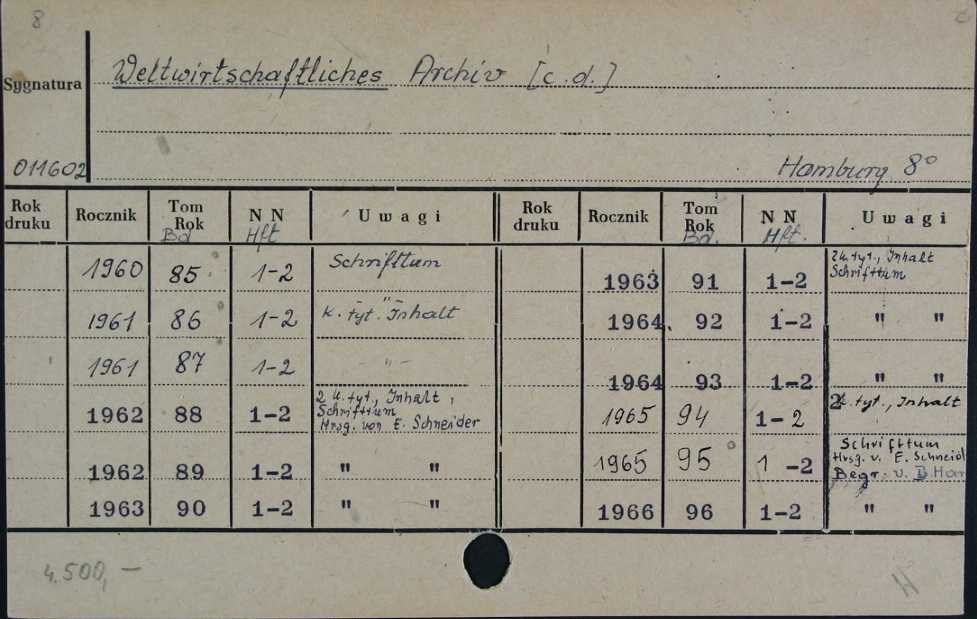 8
Sygnatura Weltwirtschaftliches Archiv [c.d.]
011602 Hamburg 8°
Rok druku Rocznik Tom Rok Bd N N Hft U w a g i Rok druku Rocznik Tom Rok Bd. N N Hft. U w a g i
1960 85 1-2 Schrifttum 1963 91 1-2 2 k. tyt., Inhalt
Schrifttum
1961 86 1-2 k. tyt. Inhalt 1964. 92 1-2 " "
1961 87 1-2 - " - 1964 93 1-2 " "
1962 88 1-2 2 k. tyt., Inhalt, 1965 94 1-2 2 k. tyt., Inhalt
Schrifttum
Hrsg. von E. Schneider
1962 89 1-2 " " 1965 95 1-2 Schrifttum
Hrsg. v. E. Schneid
Begr. v. B. Har
1963 90 1-2 " " 1966 96 1-2 " "
4.500,—
H